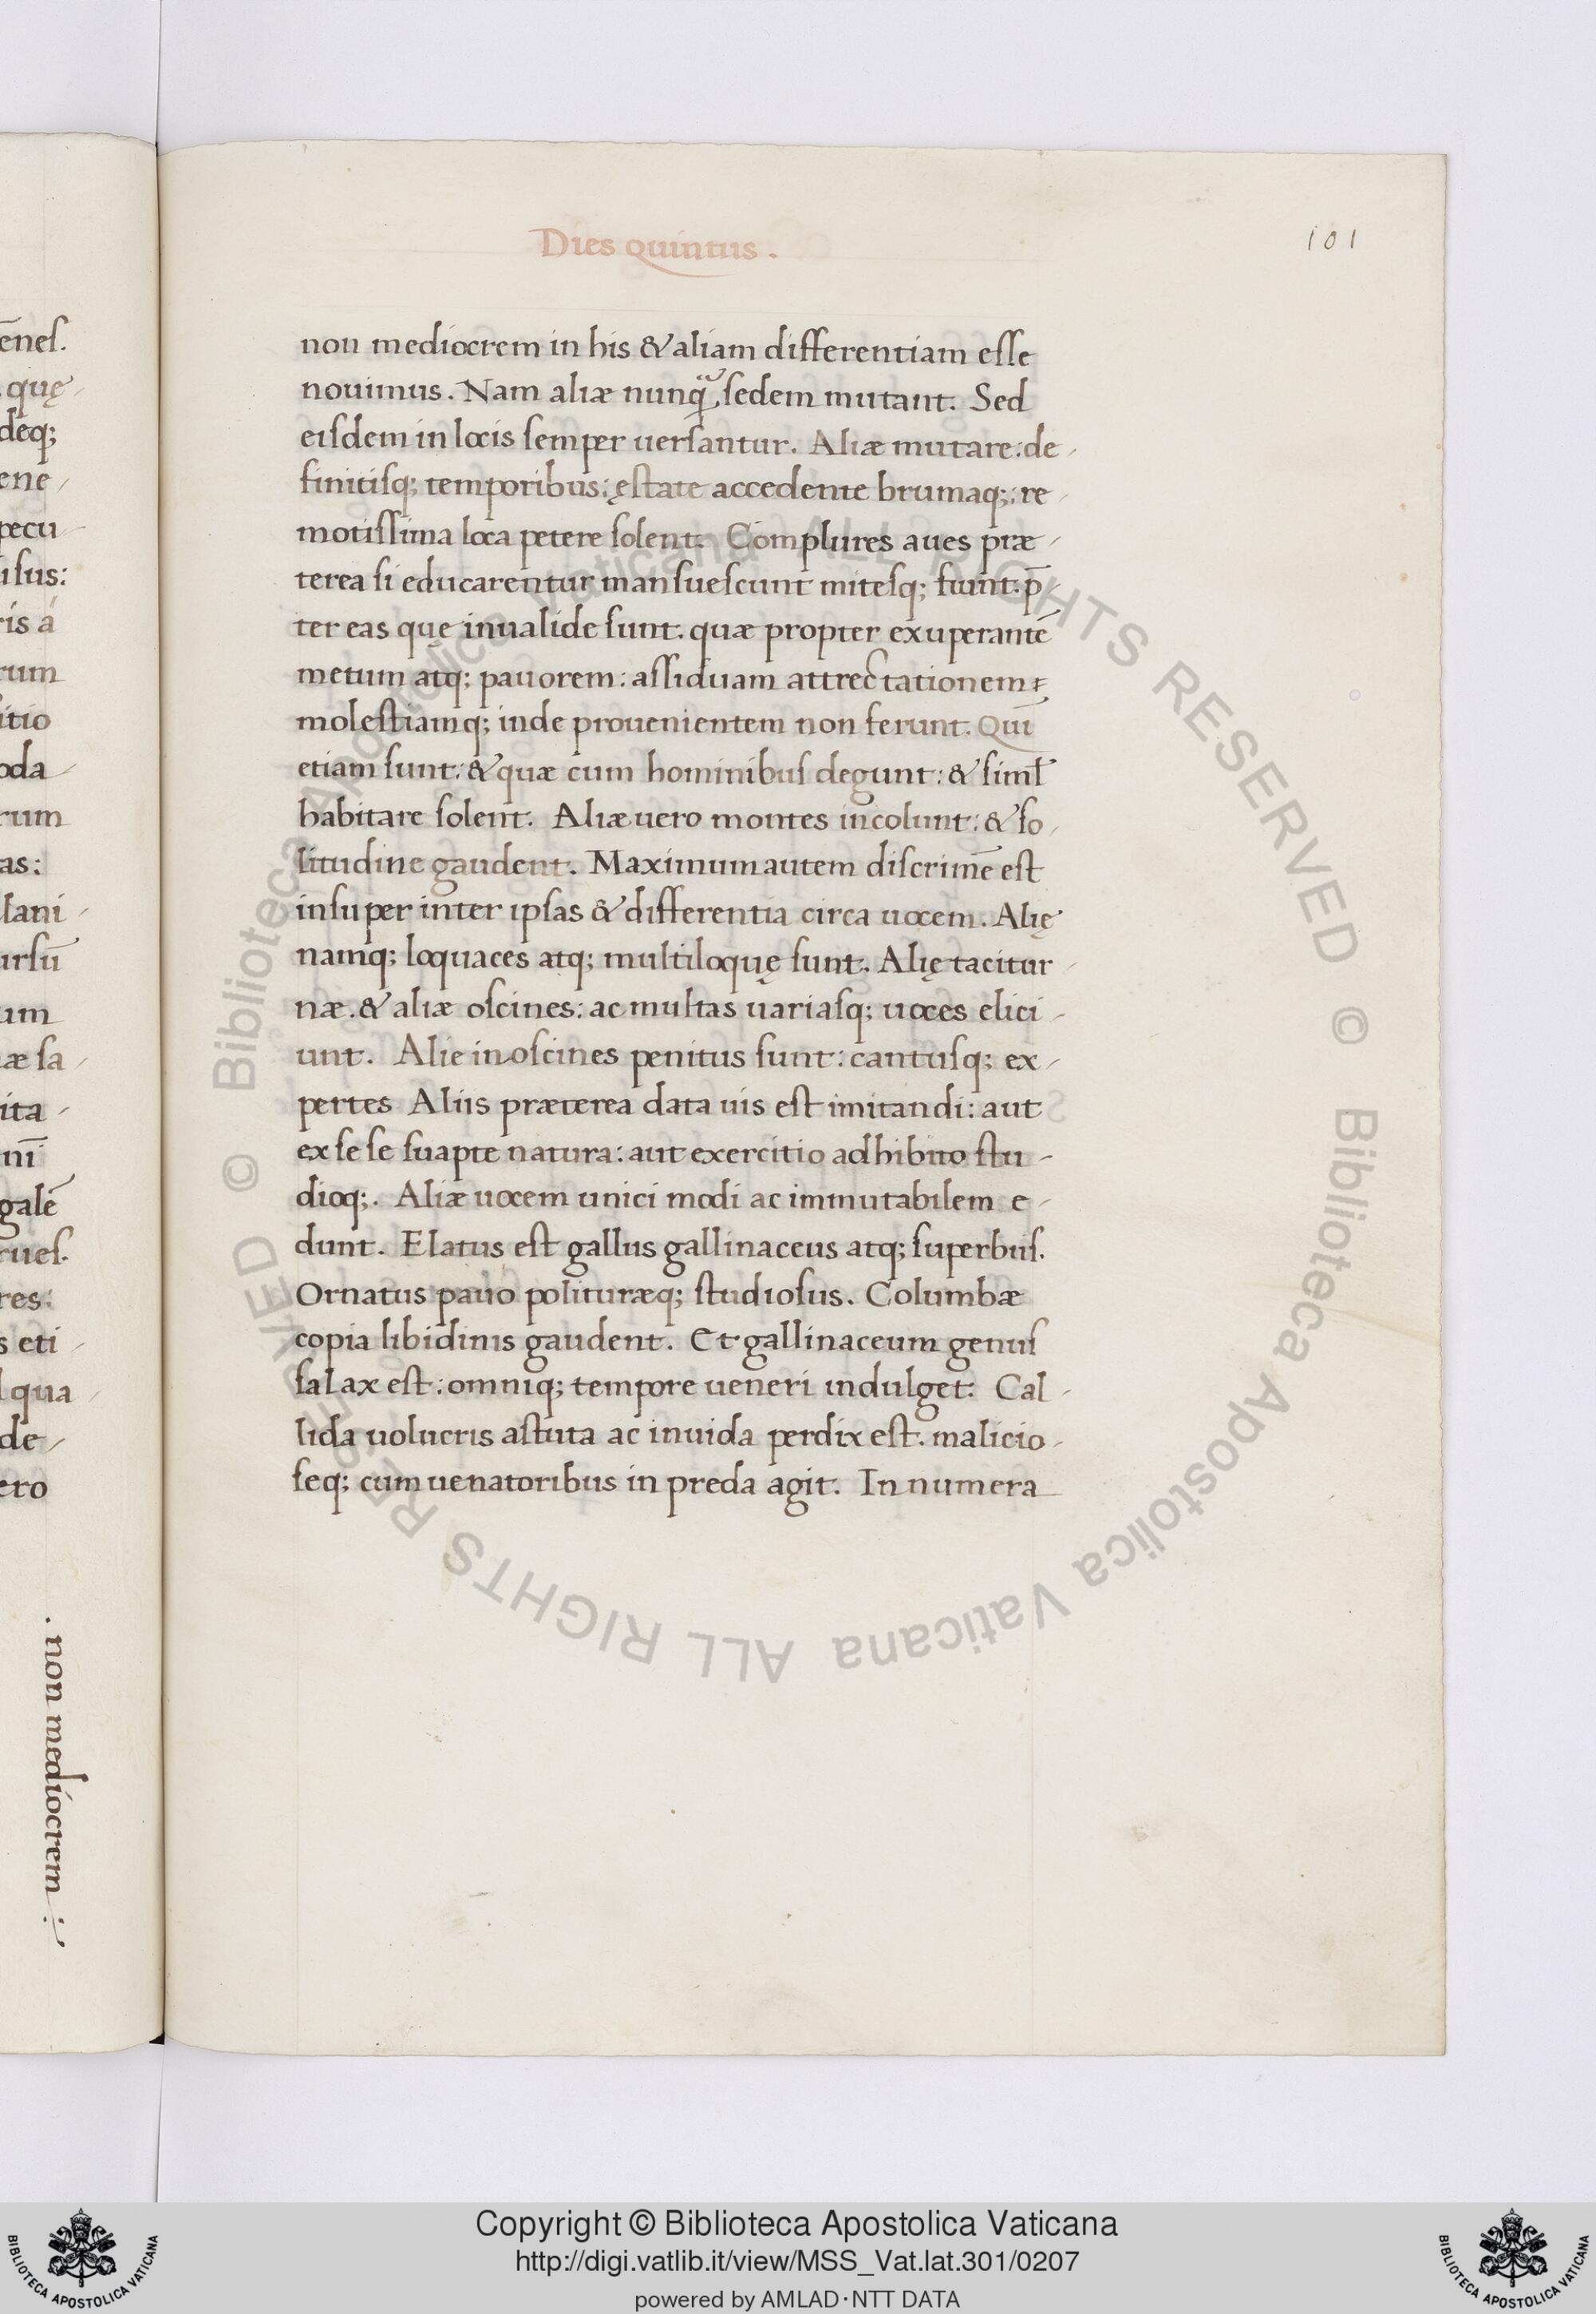 Dies quintus.
101
non mediocrem in his & aliam differentiam esse
nouimus. Nam aliæ nunq̃ sedem mutant. Sed
eisdem in locis semper uersantur. Aliæ mutare: de-
finitisq; temporibus: ęstate accedente brumaq;: re-
motissima loca petere solent. Complures aues præ-
terea si educarentur mansuescunt mitesq; fiunt. p̄-
ter eas quę inualide sunt. quæ propter exuperantē
metum atq; pauorem: assiduam attrectationem
molestiamq; inde prouenientem non ferunt. Qui
etiam sunt: & quæ cum hominibus degunt: & siml
habitare solent. Aliæ uero montes incolunt: & so-
litudine gaudent. Maximum autem discrimē est
insuper inter ipsas & differentia circa uocem. Alię
namq; loquaces atq; multiloquę sunt. Alię tacitur-
næ. & aliæ oscines: ac multas uariasq; uoces elici-
unt. Alie inoscines penitus sunt: cantusq; ex-
pertes Aliis præterea data uis est imitandi: aut
ex se se suapte natura: aut exercitio adhibito stu-
dioq;. Aliæ uocem unici modi ac immutabilem e-
dunt. Elatus est gallus gallinaceus atq; superbus.
Ornatus pauo polituræq; studiosus. Columbæ
copia libidinis gaudent. Et gallinaceum genus
salax est: omniq; tempore ueneri indulget: Cal-
lida uolucris astuta ac inuida perdix est. malicio-
seq; cum uenatoribus in preda agit. In numera
ēnes.
quę
deq;
ene-
pecu-
isus:
ris á
rum
itio
oda-
rum
as:
sani-
ursū
um
æ sa-
ita-
nī
galē
rues.
res:
s eti-
qua-
de-
ero
. non mediocrem :
© Biblioteca Apostolica Vaticana ALL RIGHTS RESERVED
© Biblioteca Apostolica Vaticana ALL RIGHTS RESERVED
Copyright © Biblioteca Apostolica Vaticana
http://digi.vatlib.it/view/MSS_Vat.lat.301/0207
powered by AMLAD·NTT DATA
BIBLIOTECA APOSTOLICA VATICANA
BIBLIOTECA APOSTOLICA VATICANA